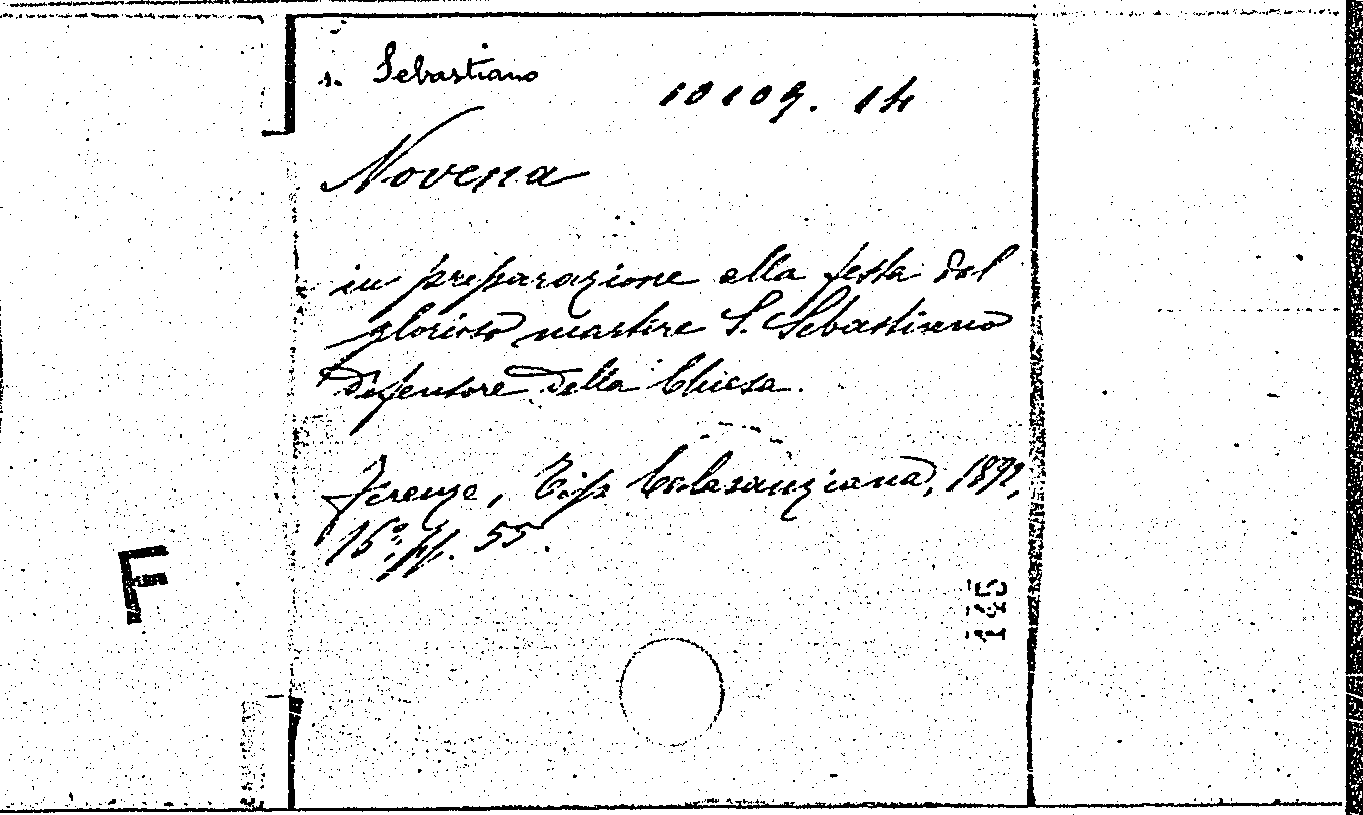 s. Sebastiano
10109. 14
Novena
in preparazione alla festa del
glorioso martire S. Sebastiano
difensore della Chiesa.
Firenze, Tip Calasanziana, 1892,
16°, pp. 55.
145
F